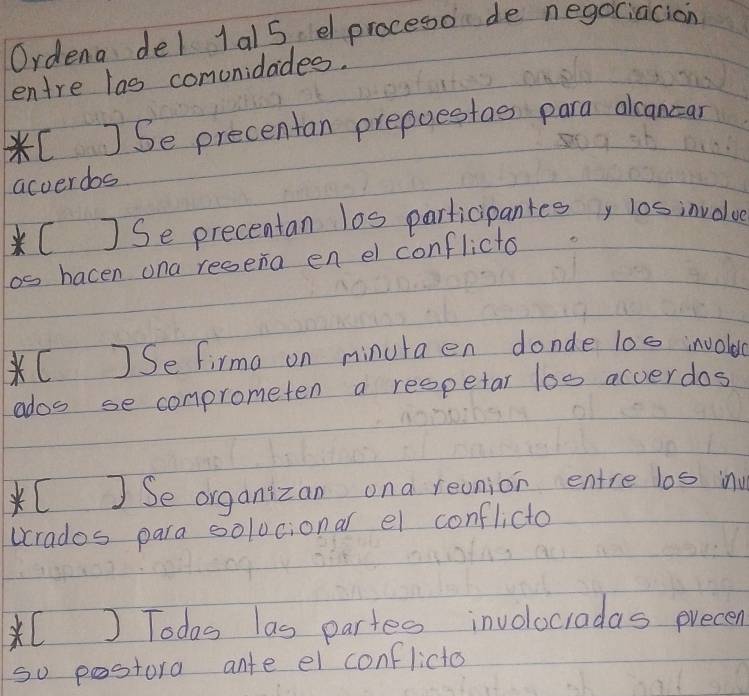 Ordena del 1 al 5 el proceso de negociación
entre las comunidades.
*[ ] Se precentan prepuestas para alcanzar
acuerdos
*[ ] Se precentan los participantes y los involuc
os hacen una reseña en el conflicto
*[ ] Se firma un minuta en donde los involuc
ados se comprometen a respetar los acuerdos
*[ ] Se organizan una reunion entre los inv
ucrados para solucionar el conflicto
*[ ] Todas las partes involocradas precen
su postura ante el conflicto